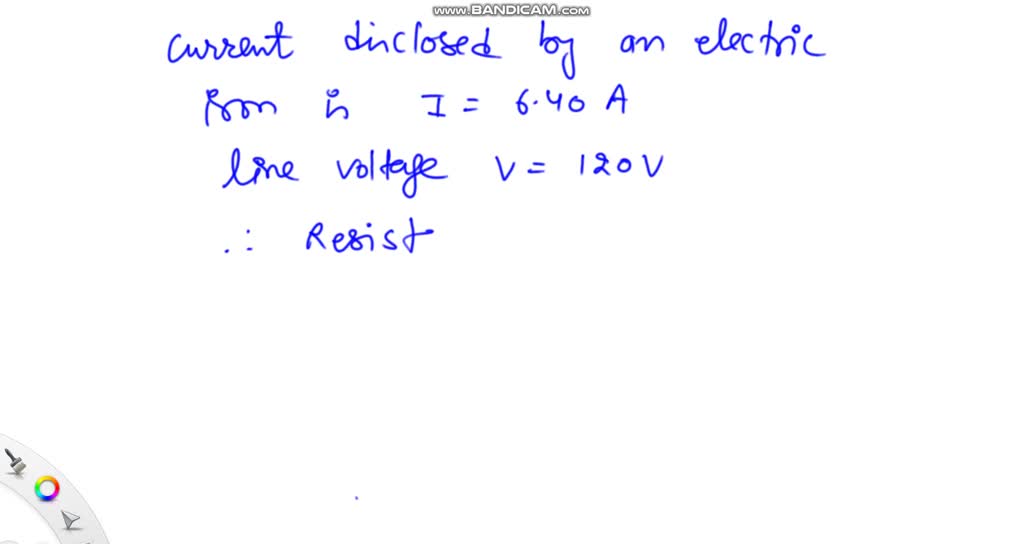 www.BANDICAM.com
current disclosed by an electric
iron is I = 6.40 A
line voltage V = 120 V
∴ Resist